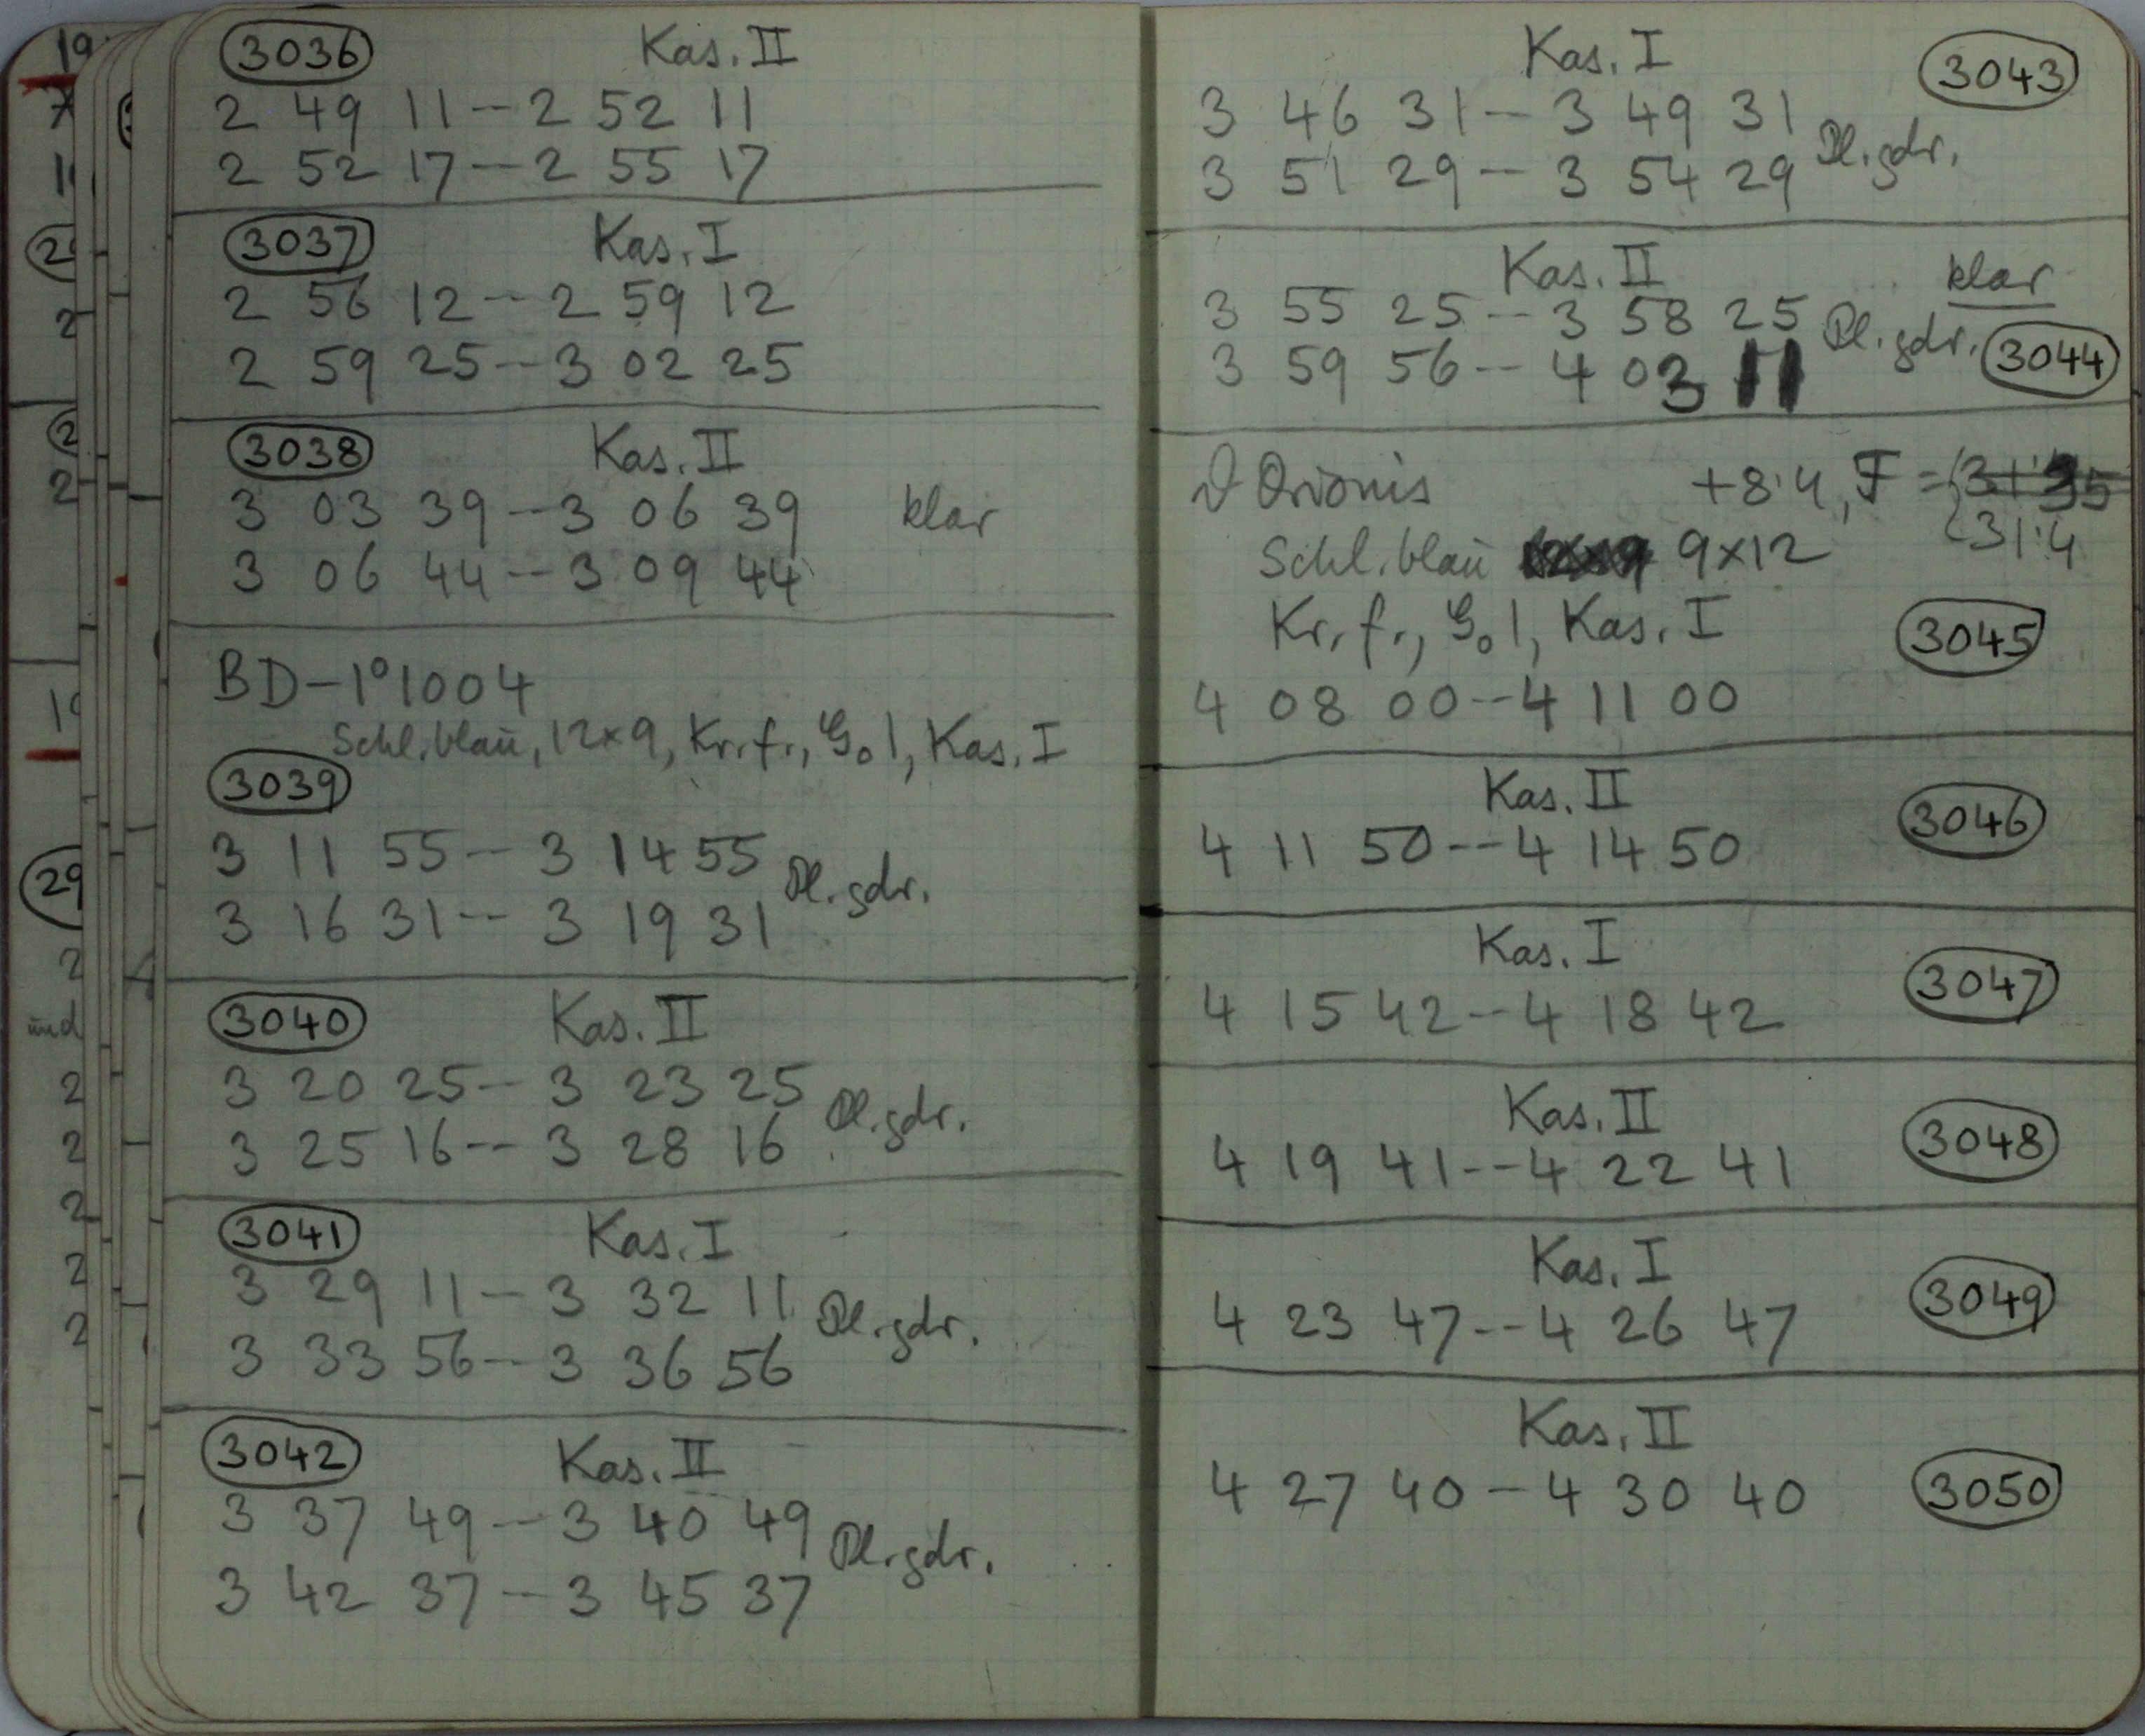 3036 Kas. II
2 49 11 -- 2 52 11
2 52 17 -- 2 55 17
3037 Kas. I
2 56 12 -- 2 59 12
2 59 25 -- 3 02 25
3038 Kas. II
3 03 39 -- 3 06 39 klar
3 06 44 -- 3 09 44
BD-1°1004
Schl. blau, 12x9, Kr. f., G. 1, Kas. I
3039
3 11 55 -- 3 14 55
Pl. gdr.
3 16 31 -- 3 19 31
3040 Kas. II
3 20 25 -- 3 23 25
Pl. gdr.
3 25 16 -- 3 28 16
3041 Kas. I
3 29 11 -- 3 32 11
Pl. gdr.
3 33 56 -- 3 36 56
3042 Kas. II
3 37 49 -- 3 40 49
Pl. gdr.
3 42 37 -- 3 45 37
Kas. I 3043
3 46 31 -- 3 49 31
Pl. gdr.
3 51 29 -- 3 54 29
Kas. II klar
3 55 25 -- 3 58 25
Pl. gdr.
3 59 56 -- 4 03 11 3044
ϑ Orionis +8.4, F =
31.4
Schl. blau 9x12
Kr. f., G. 1, Kas. I 3045
4 08 00 -- 4 11 00
Kas. II 3046
4 11 50 -- 4 14 50
Kas. I 3047
4 15 42 -- 4 18 42
Kas. II 3048
4 19 41 -- 4 22 41
Kas. I 3049
4 23 47 -- 4 26 47
Kas. II
4 27 40 -- 4 30 40 3050